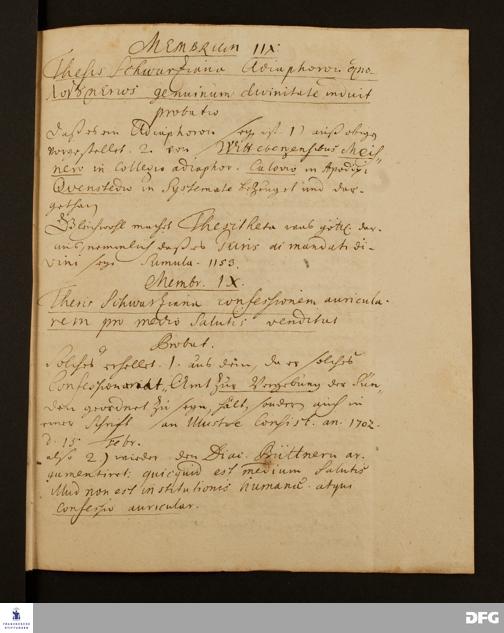 MEMBRUM IIX.
Thesis Schwarziana Adiaphoron
genuinum divinitate induit
probatio
Daß es ein Adiaphoron sey ist 1) auß obigen
vorgestellet. 2. von Wittebergensibus Meis=
nero in Collegio adiaphor. Calovio in Apodixi
Qvenstedio in Systemate bezeuget und dar-
gethan
Gleichwohl macht Thesitheta was göttl. dar-
aus, nemmlich daß es Juris ac mandati di-
vini seye Simula. 1153.
Membr. IX.
Thesis Schwarziana confessionem auricula-
rem pro medio Salutis venditat
Probat.
Solches erhellet. 1. aus dem, da er solches
Confession Amt zur Vergebung der Sün-
den geordnet zu seyn, hält, sondern auch in
einer Schrift an Illustre Consist. an. 1702.
d. 15 Febr.
also 2) wieder den Diac. Büttnern ar-
gumentiret: quicquid est medium Salutis
illud non est institutionis humanæ. atqui
Confessio auricular.
FRANCKESCHE
STIFTUNGEN
DFG